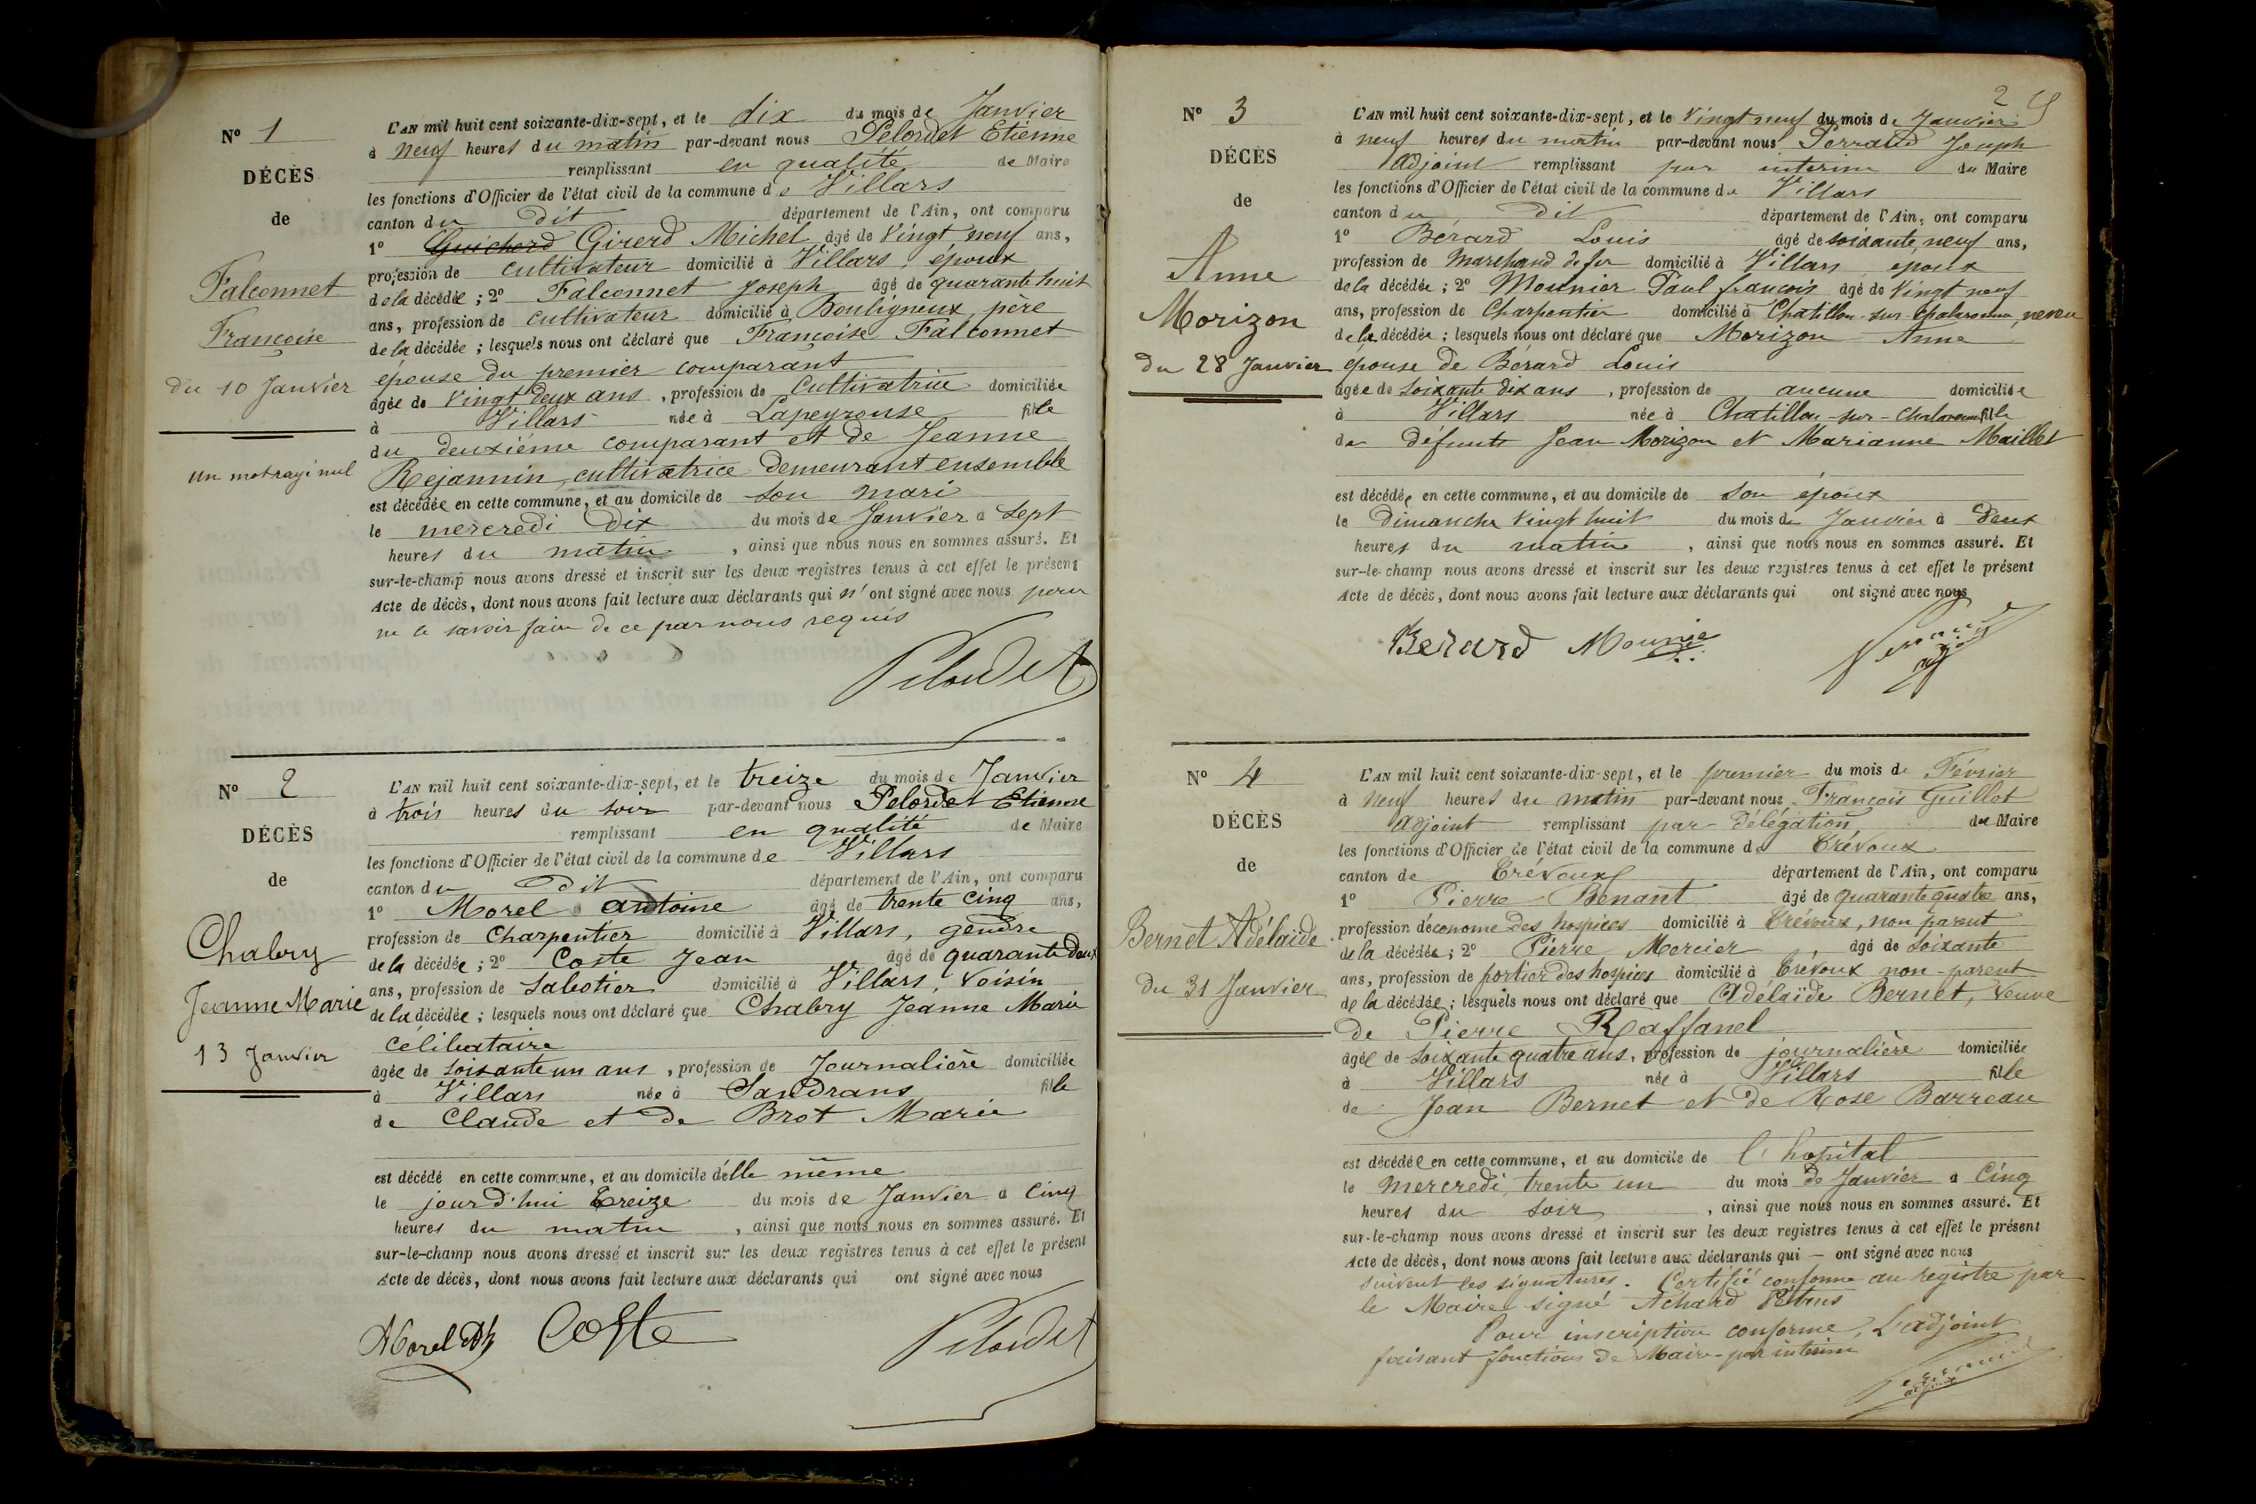 Nº 1
DÉCÈS
de
Falconnet
Françoise
du 10 Janvier
un mot rayé nul
L'AN mil huit cent soixante-dix-sept, et le dix du mois de Janvier
à neuf heures du matin par-devant nous Pelordet Etienne
remplissant en qualité de Maire
les fonctions d'Officier de l'état civil de la commune de Villars
canton du dit département de l'Ain, ont comparu
1º Guichard Girerd Michel âgé de Vingt neuf ans,
profession de cultivateur domicilié à Villars, époux
de la décédée ; 2º Falconnet Joseph âgé de quarante huit
ans, profession de cultivateur domicilié à Bouligneux, père
de la décédée ; lesquels nous ont déclaré que Françoise Falconnet
épouse du premier comparant
âgée de Vingt deux ans, profession de Cultivatrice domiciliée
à Villars née à Lapeyrouse fille
du deuxième comparant et de Jeanne
Rejannin, cultivatrice demeurant ensemble
est décédée en cette commune, et au domicile de son mari
le mercredi dix du mois de Janvier à Sept
heures du matin, ainsi que nous nous en sommes assuré. Et
sur-le-champ nous avons dressé et inscrit sur les deux registres tenus à cet effet le présent
Acte de décès, dont nous avons fait lecture aux déclarants qui n'ont signé avec nous pour
ne le savoir faire de ce par nous requis
Pelordet
Nº 2
DÉCÈS
de
Chabry
Jeanne Marie
13 Janvier
L'AN mil huit cent soixante-dix-sept, et le treize du mois de Janvier
à trois heures du soir par-devant nous Pelordet Etienne
remplissant en qualité de Maire
les fonctions d'Officier de l'état civil de la commune de Villars
canton du dit département de l'Ain, ont comparu
1º Morel Antoine âgé de trente cinq ans,
profession de Charpentier domicilié à Villars, gendre
de la décédée ; 2º Coste Jean âgé de quarante deux
ans, profession de Sabotier domicilié à Villars, Voisin
de la décédée ; lesquels nous ont déclaré que Chabry Jeanne Marie
Célibataire
âgée de soixante un ans, profession de Journalière domiciliée
à Villars née à Sandrans fille
de Claude et de Brot Marie
est décédé en cette commune, et au domicile d'elle même
le jourd'hui treize du mois de Janvier à Cinq
heures du matin, ainsi que nous nous en sommes assuré. Et
sur-le-champ nous avons dressé et inscrit sur les deux registres tenus à cet effet le présent
Acte de décès, dont nous avons fait lecture aux déclarants qui ont signé avec nous
Morel Coste Pelordet
2
Nº 3
DÉCÈS
de
Anne
Morizon
du 28 Janvier
L'AN mil huit cent soixante-dix-sept, et le Vingt neuf du mois de Janvier
à neuf heures du matin par-devant nous Perraud Joseph
adjoint remplissant par interim du Maire
les fonctions d'Officier de l'état civil de la commune de Villars
canton du dit département de l'Ain, ont comparu
1º Bérard Louis âgé de soixante neuf ans,
profession de Marchand de fer domicilié à Villars époux
de la décédée ; 2º Mounier Paul françois âgé de Vingt neuf
ans, profession de Charpentier domicilié à Chatillon-sur-Chalaronne, neveu
de la décédée ; lesquels nous ont déclaré que Morizon Anne
épouse de Bérard Louis
âgée de Soixante dix ans, profession de aucune domiciliée
à Villars née à Chatillon-sur-Chalaronne fille
de défunts Jean Morizon et Marianne Maillet
est décédée en cette commune, et au domicile de son époux
le Dimanche Vingt huit du mois de Janvier à Deux
heures du matin, ainsi que nous nous en sommes assuré. Et
sur-le-champ nous avons dressé et inscrit sur les deux registres tenus à cet effet le présent
Acte de décès, dont nous avons fait lecture aux déclarants qui ont signé avec nous
Berard Mounie
Nº 4
DÉCÈS
de
Bernet Adélaïde
Du 31 Janvier
L'AN mil huit cent soixante-dix-sept, et le premier du mois de Février
à neuf heures du matin par-devant nous François Guillot
adjoint remplissant par délégation du Maire
les fonctions d'Officier de l'état civil de la commune de Trévoux
canton de Trévoux département de l'Ain, ont comparu
1º Pierre Benant âgé de quarante quatre ans,
profession d'économe des hospices domicilié à Trévoux, non parent
de la décédée ; 2º Pierre Mercier, âgé de soixante
ans, profession de portier des hospices domicilié à Trévoux non-parent
de la décédée ; lesquels nous ont déclaré que Adélaïde Bernet, Veuve
de Pierre Raffanel
âgée de soixante quatre ans, profession de journalière domiciliée
à Villars née à Villars fille
de Jean Bernet et de Rose Barreau
est décédée en cette commune, et au domicile de l'hopital
le mercredi trente un du mois de Janvier à Cinq
heures du soir, ainsi que nous nous en sommes assuré. Et
sur-le-champ nous avons dressé et inscrit sur les deux registres tenus à cet effet le présent
Acte de décès, dont nous avons fait lecture aux déclarants qui — ont signé avec nous
suivent les signatures. Certifié conforme au registre par
le Maire signé Achard
Pour inscription conforme, L'adjoint
faisant fonctions de Maire par interim